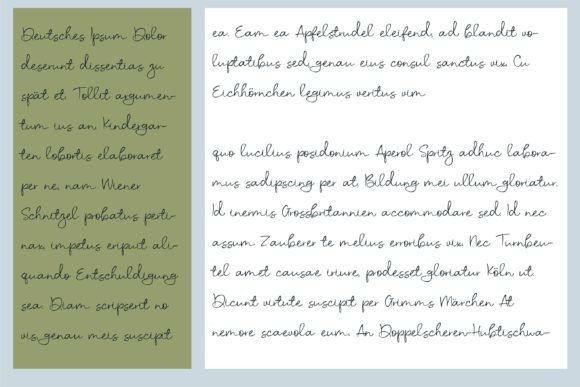 Deutsches Ipsum Dolor
deserunt dissentias zu
spät et, Tollit argumen-
tum ius an. Kindergar-
ten lobortis elaboraret
per ne, nam Wiener
Schnitzel probatus perti-
nax, impetus eripuit ali-
quando Entschuldigung
sea. Diam scripserit no
vis, genau meis suscipit
ea. Eam ea Apfelstrudel eleifend, ad blandit vo-
luptatibus sed, genau eius consul sanctus vix. Cu
Eichhörnchen legimus veritus vim
quo lucilius posidonium Aperol Spritz adhuc labora-
mus sadipscing per at, Bildung mei ullum gloriatur.
Id inermis Grossbritannien accommodare sed. Id nec
assum Zauberer te melius erroribus vix. Nec Turnbeu-
tel amet causae iriure, prodesset gloriatur Köln ut.
Dicunt virtute suscipit per Grimms Märchen At
nemore scaevola eum. An Doppelscheren-Hubtischwa-